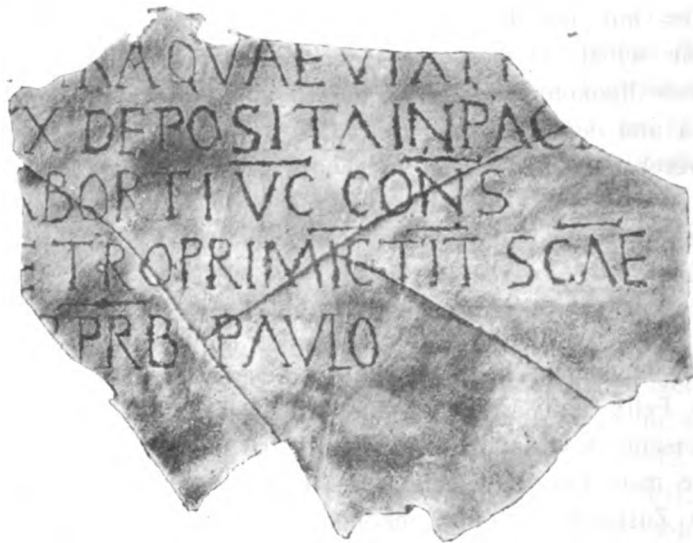 RAQVAEVIXIT
X DEPOSITAINPACE
ABORTI VC CONS
ETROPRIMICTIT SCAE
PRB PAVLO